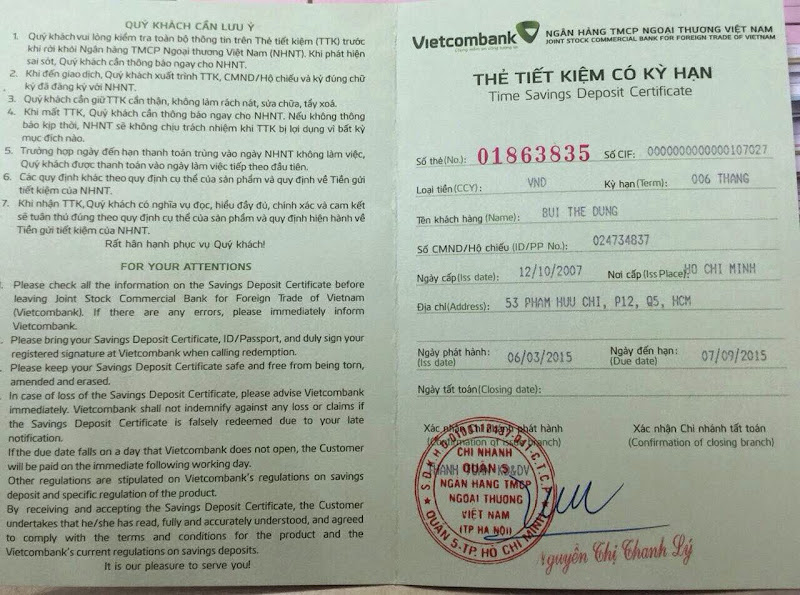 QUÝ KHÁCH CẦN LƯU Ý
1. Quý khách vui lòng kiểm tra toàn bộ thông tin trên Thẻ tiết kiệm (TTK) trước
khi rời khỏi Ngân hàng TMCP Ngoại thương Việt Nam (NHNT). Khi phát hiện
sai sót, Quý khách cần thông báo ngay cho NHNT.
2. Khi đến giao dịch, Quý khách xuất trình TTK, CMND/Hộ chiếu và ký đúng chữ
ký đã đăng ký với NHNT.
3. Quý khách cần giữ TTK cẩn thận, không làm rách nát, sửa chữa, tẩy xoá.
4. Khi mất TTK, Quý khách cần thông báo ngay cho NHNT. Nếu không thông
báo kịp thời, NHNT sẽ không chịu trách nhiệm khi TTK bị lợi dụng vì bất kỳ
mục đích nào.
5. Trường hợp ngày đến hạn thanh toán trùng vào ngày NHNT không làm việc,
Quý khách được thanh toán vào ngày làm việc tiếp theo đầu tiên.
6. Các quy định khác theo quy định cụ thể của sản phẩm và quy định về Tiền gửi
tiết kiệm của NHNT.
7. Khi nhận TTK, Quý khách có nghĩa vụ đọc, hiểu đầy đủ, chính xác và cam kết
sẽ tuân thủ đúng theo quy định cụ thể của sản phẩm và quy định hiện hành về
Tiền gửi tiết kiệm của NHNT.
Rất hân hạnh phục vụ Quý khách!
FOR YOUR ATTENTIONS
Please check all the information on the Savings Deposit Certificate before
leaving Joint Stock Commercial Bank for Foreign Trade of Vietnam
(Vietcombank). If there are any errors, please immediately inform
Vietcombank.
Please bring your Savings Deposit Certificate, ID/Passport, and duly sign your
registered signature at Vietcombank when calling redemption.
Please keep your Savings Deposit Certificate safe and free from being torn,
amended and erased.
In case of loss of the Savings Deposit Certificate, please advise Vietcombank
immediately. Vietcombank shall not indemnify against any loss or claims if
the Savings Deposit Certificate is falsely redeemed due to your late
notification.
If the due date falls on a day that Vietcombank does not open, the Customer
will be paid on the immediate following working day.
Other regulations are stipulated on Vietcombank's regulations on savings
deposit and specific regulation of the product.
By receiving and accepting the Savings Deposit Certificate, the Customer
undertakes that he/she has read, fully and accurately understood, and agreed
to comply with the terms and conditions for the product and the
Vietcombank's current regulations on savings deposits.
It is our pleasure to serve you!
Vietcombank
NGÂN HÀNG TMCP NGOẠI THƯƠNG VIỆT NAM
JOINT STOCK COMMERCIAL BANK FOR FOREIGN TRADE OF VIETNAM
THẺ TIẾT KIỆM CÓ KỲ HẠN
Time Savings Deposit Certificate
Số thẻ(No.): 01863835 Số CIF: 0000000000000107027
Loại tiền(CCY): VND Kỳ hạn(Term): 006 THANG
Tên khách hàng (Name): BUI THE DUNG
Số CMND/Hộ chiếu (ID/PP No.): 024734837
Ngày cấp(Iss date): 12/10/2007 Nơi cấp(Iss Place): HO CHI MINH
Địa chỉ(Address): 53 PHAM HUU CHI, P12, Q5, HCM
Ngày phát hành: 06/03/2015 Ngày đến hạn: 07/09/2015
(Iss date) (Due date)
Ngày tất toán(Closing date):
Xác nhận Chi nhánh phát hành Xác nhận Chi nhánh tất toán
(Confirmation of issue branch) (Confirmation of closing branch)
CHI NHÁNH
QUẬN 5
NGÂN HÀNG TMCP
NGOẠI THƯƠNG
VIỆT NAM
(TP HÀ NỘI)
QUẬN 5-TP. HỒ CHÍ MINH
Nguyễn Thị Thanh Lý